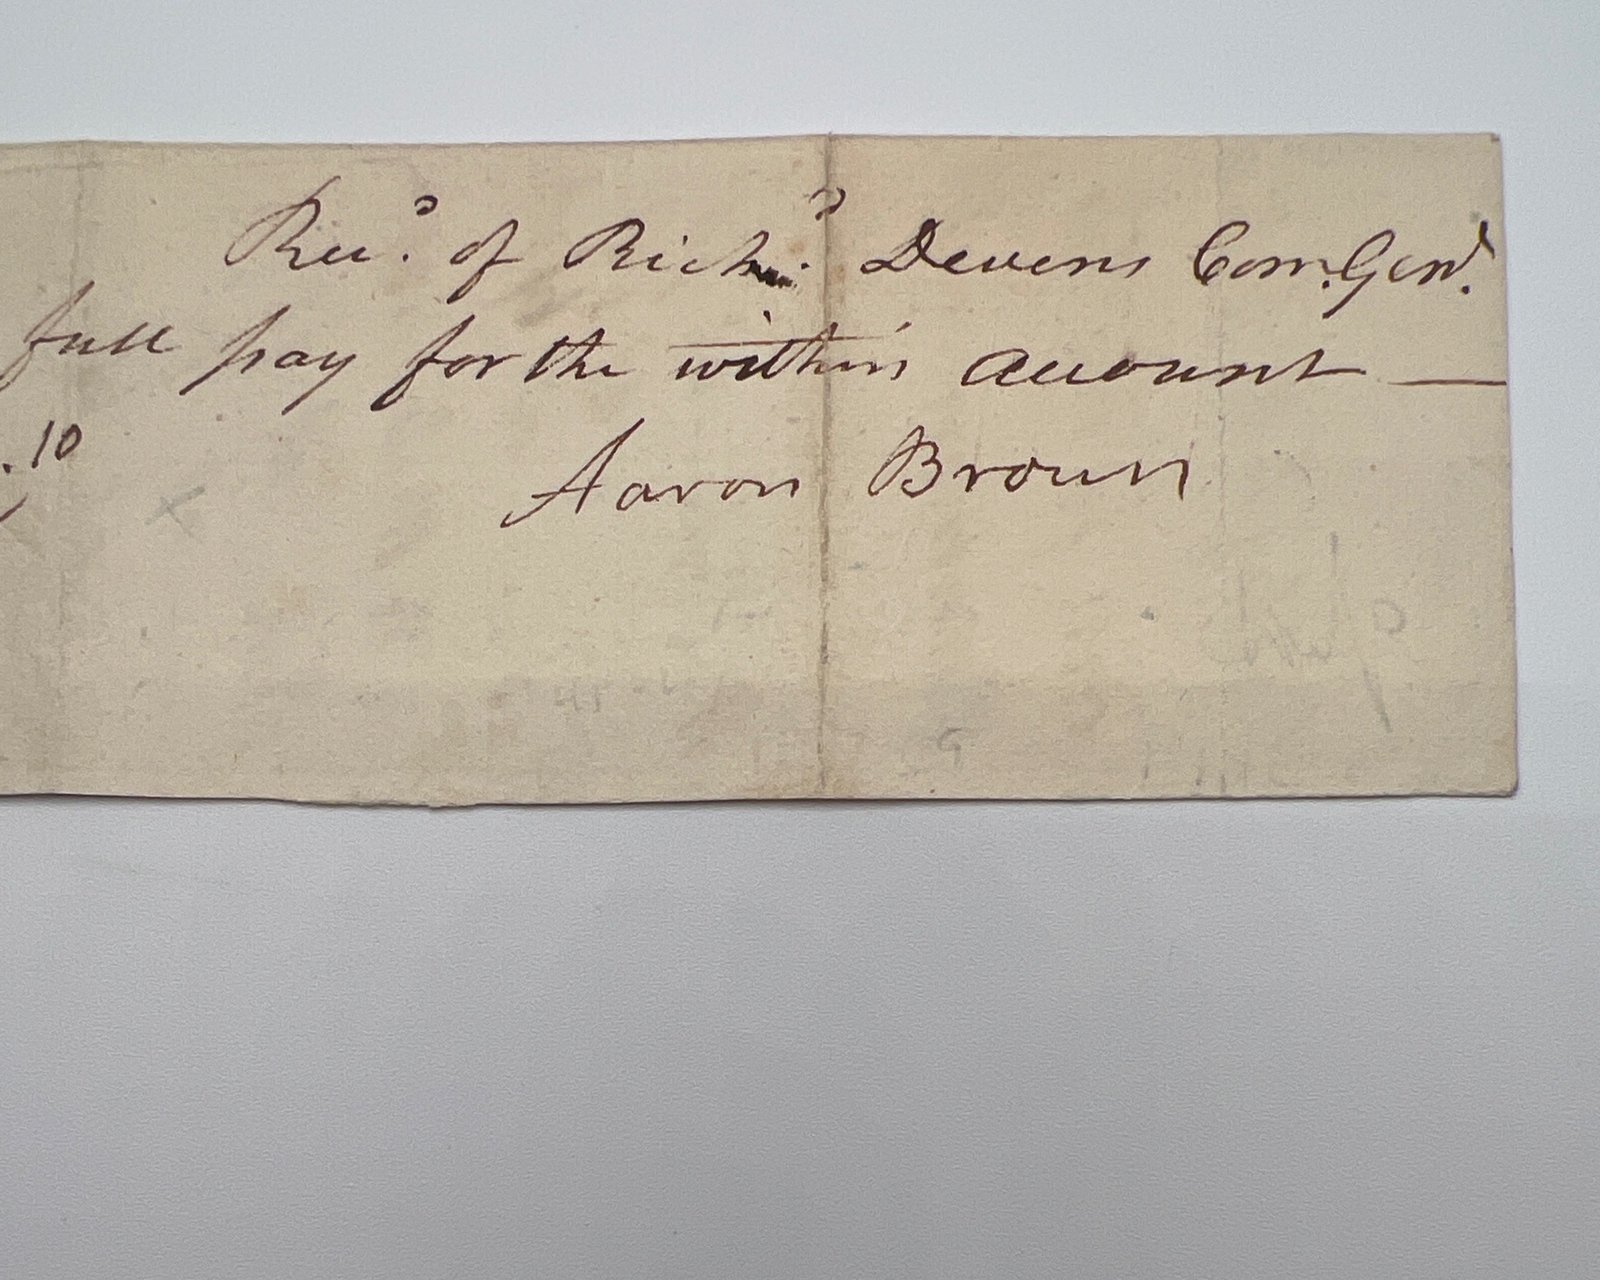 Rec.d of Rich.d Devens Com. Genl.
full pay for the within account —
. 10
Aaron Brown